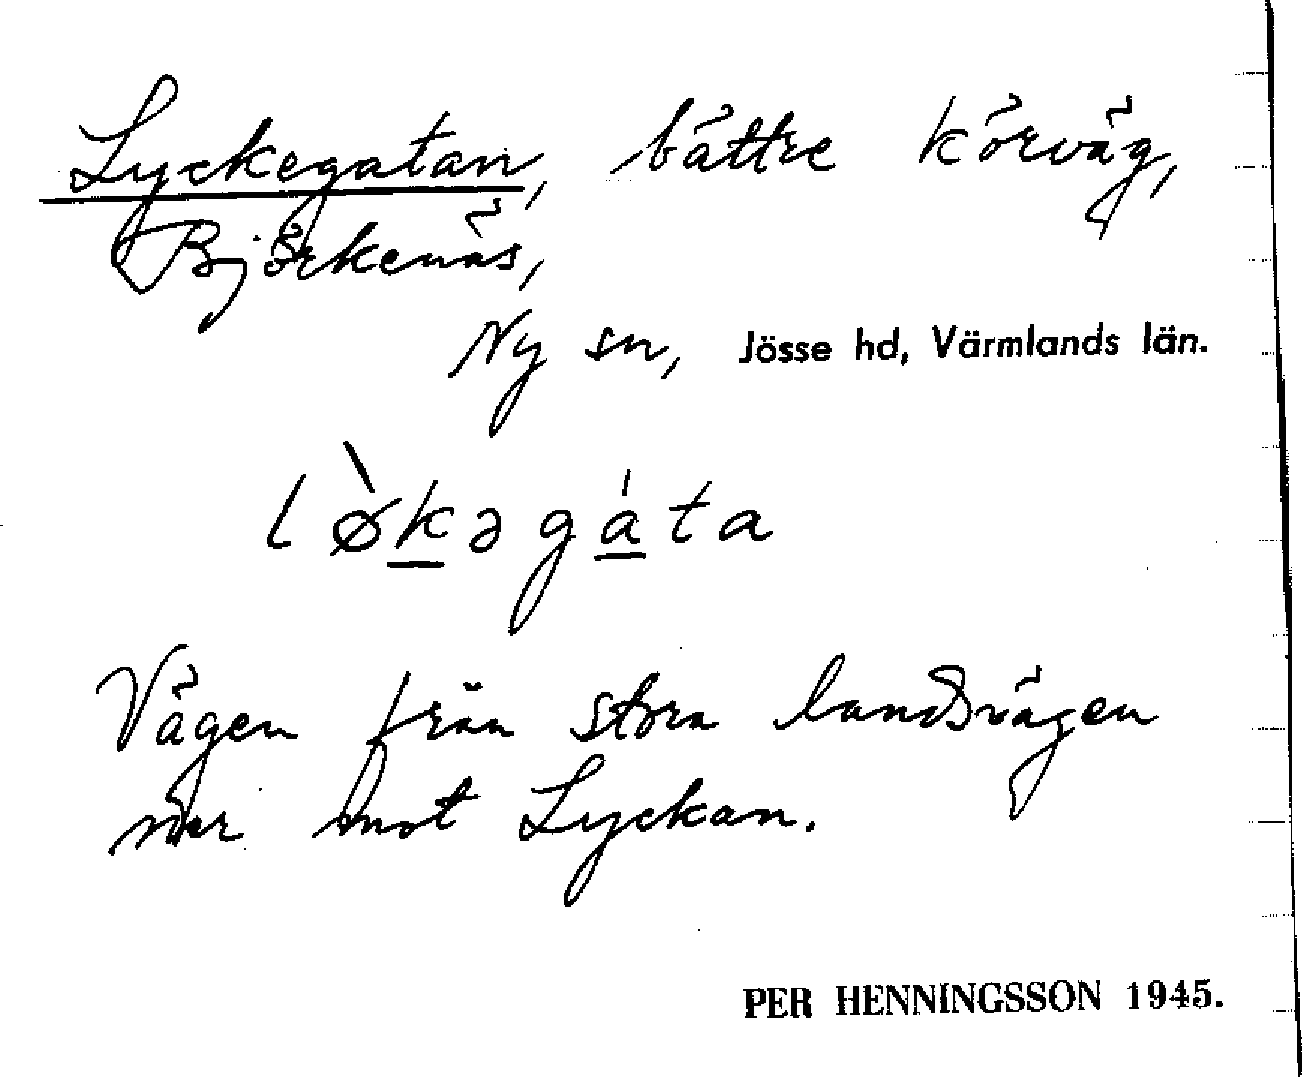 Lyckegatan, bättre körväg,
Björkenäs,
Ny sn, Jösse hd, Värmlands län.
lø̀kəgáta
Vägen från stora landsvägen
ner mot Lyckan.
PER HENNINGSSON 1945.